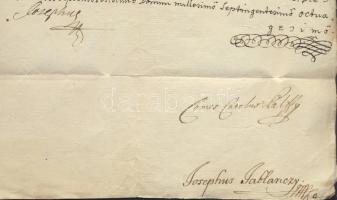 Domini millesimo Septingentesimo octua
gesimo
Josephus
Comes Carolus Pálffy
Josephus Jablanczy